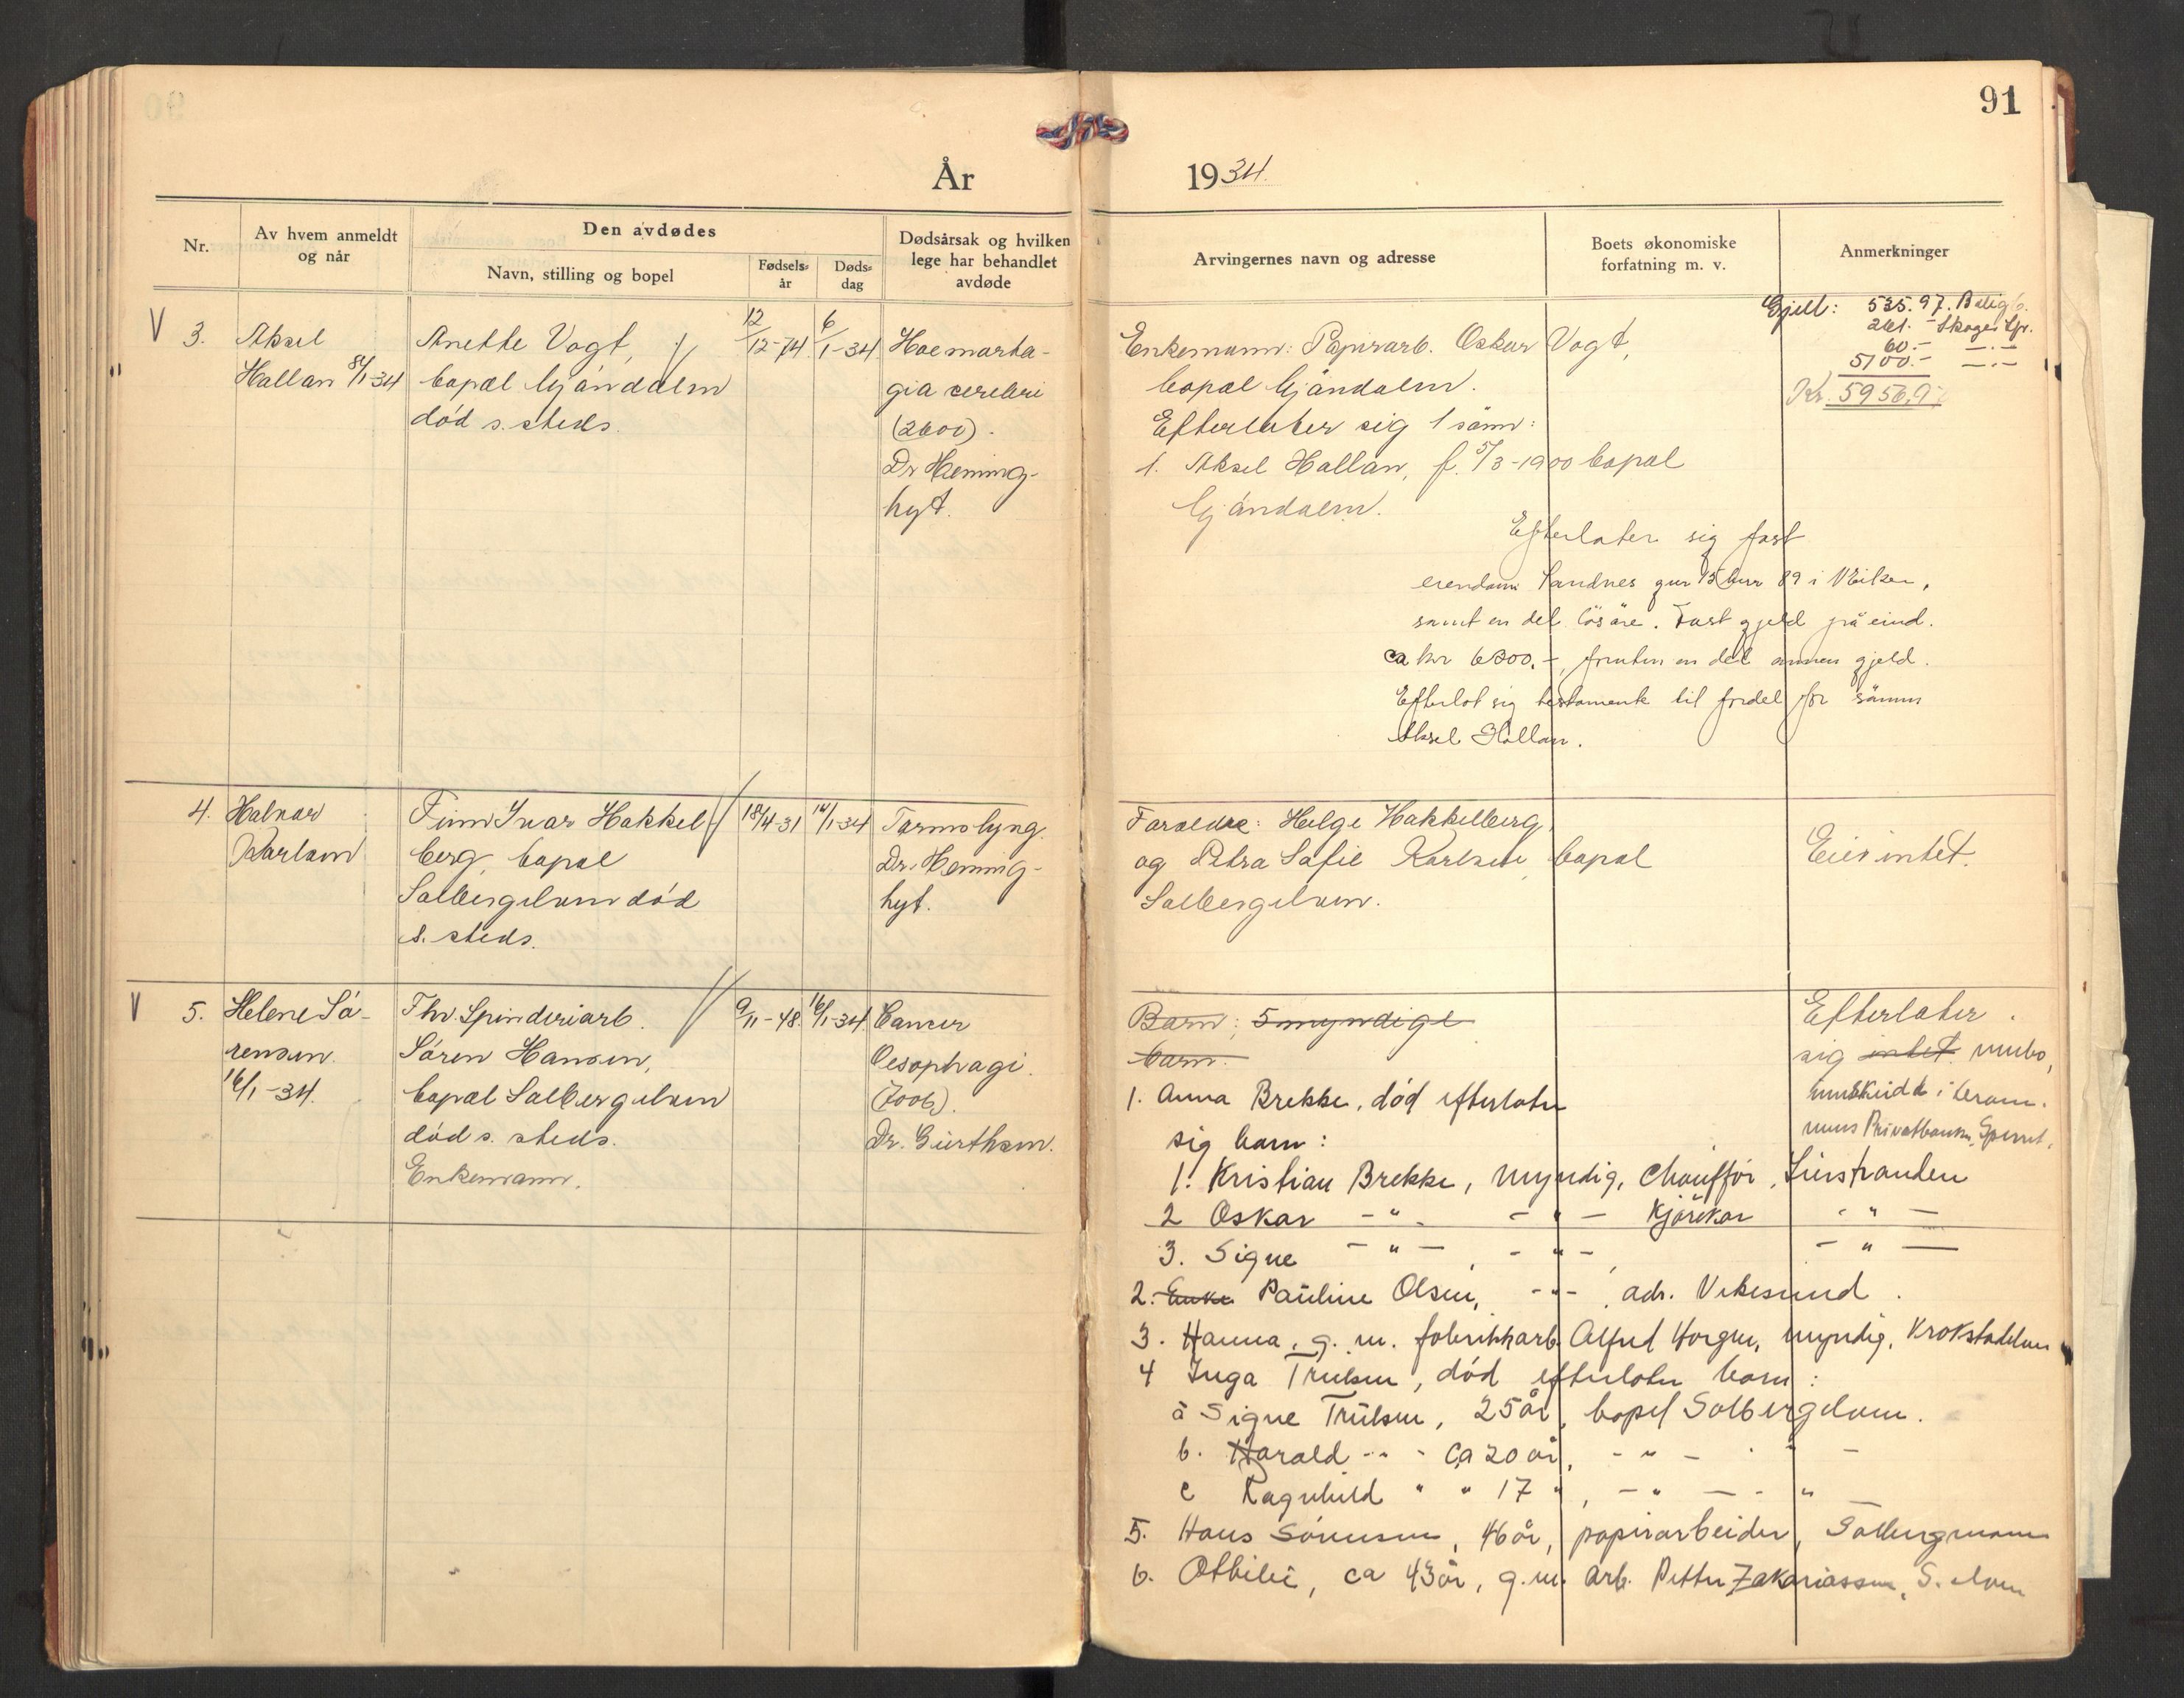 91
År 1934.
Nr.
Av hvem anmeldt
og når
Den avdødes
Navn, stilling og bopel
Fødsels-
år
Døds-
dag
Dødsårsak og hvilken
lege har behandlet
avdøde
Arvingernes navn og adresse
Boets økonomiske
forfatning m. v.
Anmerkninger
V 3.
Aksel
Hallan 8/1-34
Anette Vogt,
bopæl Mjöndalen
död s. steds.
12/12-74
6/1-34
Haemorha-
gia cerebri
(2600).
Dr Heming-
hyt.
Enkemann: Papirarb. Oskar Vogt,
bopæl Mjöndalen.
Efterlater sig 1 sönn:
1. Aksel Hallan, f. 5/3-1900 bopæl
Mjöndalen.
Gjeld: 535.97. Boligb.
261.- Skoger Spr.
60.- -.-
5100.- -.-
Kr. 5956.97
Efterlater sig fast
eiendom Sandnes gnr 15 bnr 89 i N Eiker,
samt en del lösöre. Fast gjeld på eiend.
ca kr 6300.-, foruten en del annen gjeld.
Efterlot sig testamente til fordel for sönnen
Aksel Hallan.
4.
Halvar
Karlsen
Finn Ivar Hakkel
berg, bopæl
Solbergelven död
s. steds.
18/4-31
14/1-34
Tarmslyng.
Dr. Heming-
hyt.
Foreldre: Helge Hakkelberg
og Petra Sofie Karlsen, bopæl
Solbergelven.
Eier intet.
V 5.
Helene Sö-
rensen.
16/1-34.
Fhv. Spinderiarb.
Sören Hansen,
bopæl Solbergelven
död s. steds.
Enkemann.
9/11-48.
16/1-34
Cancer
Oesophagi.
(7006).
Dr. Gürthsen.
Barn: 5 myndige
barn.
Efterlater
sig intet innbo,
innskudd i Dram-
mens Privatbank,
1. Anna Brekke, död efterlater
sig barn:
1. Kristian Brekke, myndig, Chaufför, Lierstranden
2 Oskar -"- -"- Kjörekar -"-
3. Signe -"-, -"-, -"-
2. Enke Pauline Olsen, -"-, adr. Vikesund.
3. Hanna, g. m. fabrikkarb. Alfred Horgen, myndig, Krokstadelven
4 Inga Trulsen, död efterlater barn:
a Signe Trulsen, 25 år, bopel Solbergelven.
b. Harald -"- ca 20 år, -"- -"-
c Ragnhild " " 17 ", -"- - " -
5. Hans Sörensen, 46 år, papirarbeider, Solbergmoen
6. Othilie, ca 43 år, g.m. arb. Petter Zakariassen, S. elven